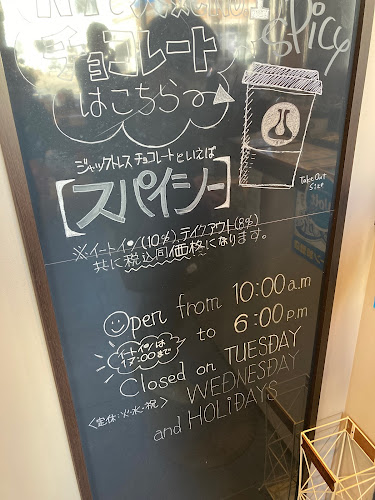 チョコレート
はこちら
Spicy
Take Out
Size
ジャックトレス チョコレートといえば
【スパイシー】
※イートイン(10%)、テイクアウト(8%)
共に税込同価格になります。
Open from 10:00a.m
to 6:00p.m
イートインは
17:00まで
Closed on TUESDAY
WEDNESDAY
<定休:火・水・祝>
and HOLiDAYS